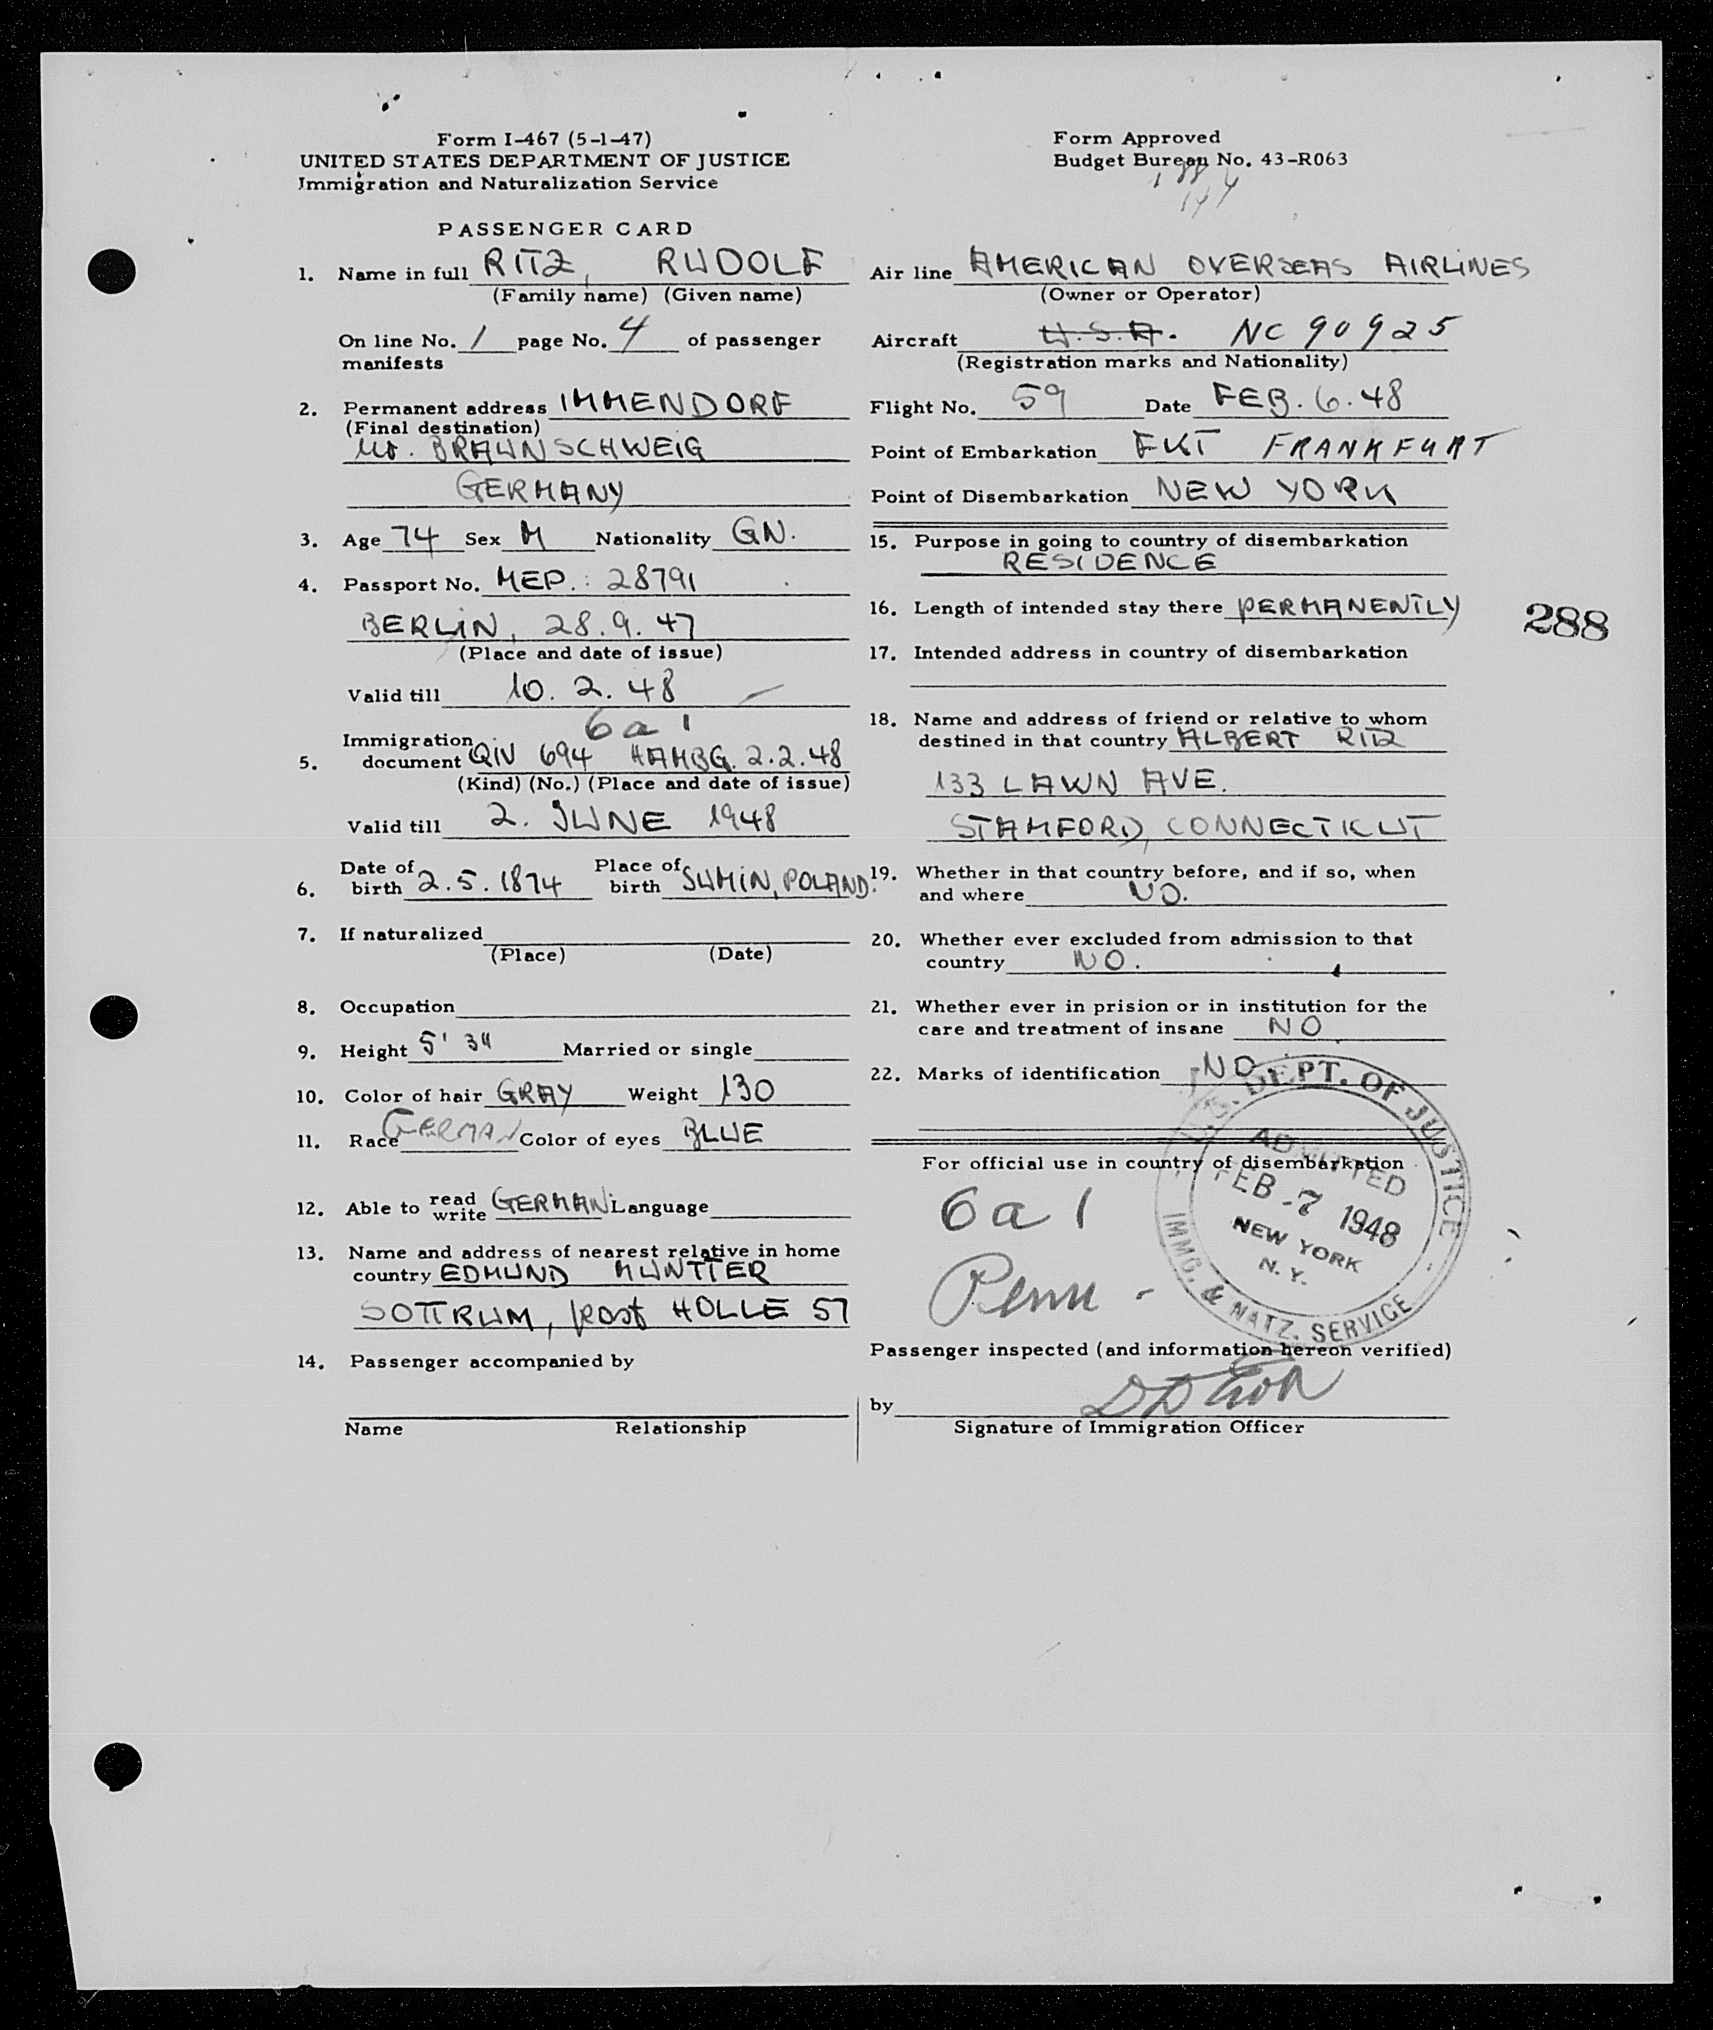 Form I-467 (5-1-47)
UNITED STATES DEPARTMENT OF JUSTICE
Immigration and Naturalization Service
Form Approved
Budget Bureau No. 43-R063
PASSENGER CARD
1. Name in full RITZ, RUDOLF
(Family name) (Given name)
On line No. 1 page No. 4 of passenger
manifests
2. Permanent address IMMENDORF
(Final destination)
BRAUNSCHWEIG
GERMANY
3. Age 74 Sex M Nationality GN.
4. Passport No. MEP.: 28791
BERLIN, 28.9.47
(Place and date of issue)
Valid till 10. 2. 48
6a 1
5. Immigration
document QIV 694 HAMBG. 2.2.48
(Kind) (No.) (Place and date of issue)
Valid till 2. JUNE 1948
6. Date of birth 2.5.1874 Place of birth SUMIN, POLAND.
7. If naturalized
(Place) (Date)
8. Occupation
9. Height 5' 3" Married or single
10. Color of hair GRAY Weight 130
11. Race GERMAN Color of eyes BLUE
12. Able to read write GERMAN Language
13. Name and address of nearest relative in home
country EDMUND MUNTTER
SOTTRUM, post HOLLE 57
14. Passenger accompanied by
Name Relationship
Air line AMERICAN OVERSEAS AIRLINES
(Owner or Operator)
Aircraft U.S.A. NC 90925
(Registration marks and Nationality)
Flight No. 59 Date FEB. 6. 48
Point of Embarkation FKT FRANKFURT
Point of Disembarkation NEW YORK
15. Purpose in going to country of disembarkation
RESIDENCE
16. Length of intended stay there PERMANENTLY
288
17. Intended address in country of disembarkation
18. Name and address of friend or relative to whom
destined in that country ALBERT RITZ
133 LAWN AVE.
STAMFORD, CONNECTICUT
19. Whether in that country before, and if so, when
and where NO.
20. Whether ever excluded from admission to that
country NO.
21. Whether ever in prision or in institution for the
care and treatment of insane NO
22. Marks of identification NO.
For official use in country of disembarkation
6a 1
U.S. DEPT. OF JUSTICE
ADMITTED
FEB -7 1948
NEW YORK
N. Y.
IMMG. & NATZ. SERVICE
Passenger inspected (and information hereon verified)
by
Signature of Immigration Officer